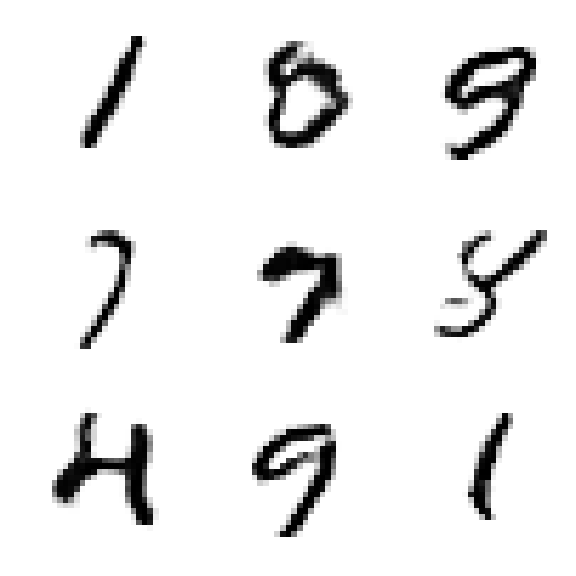 1 8 9
7 7 8
4 9 1